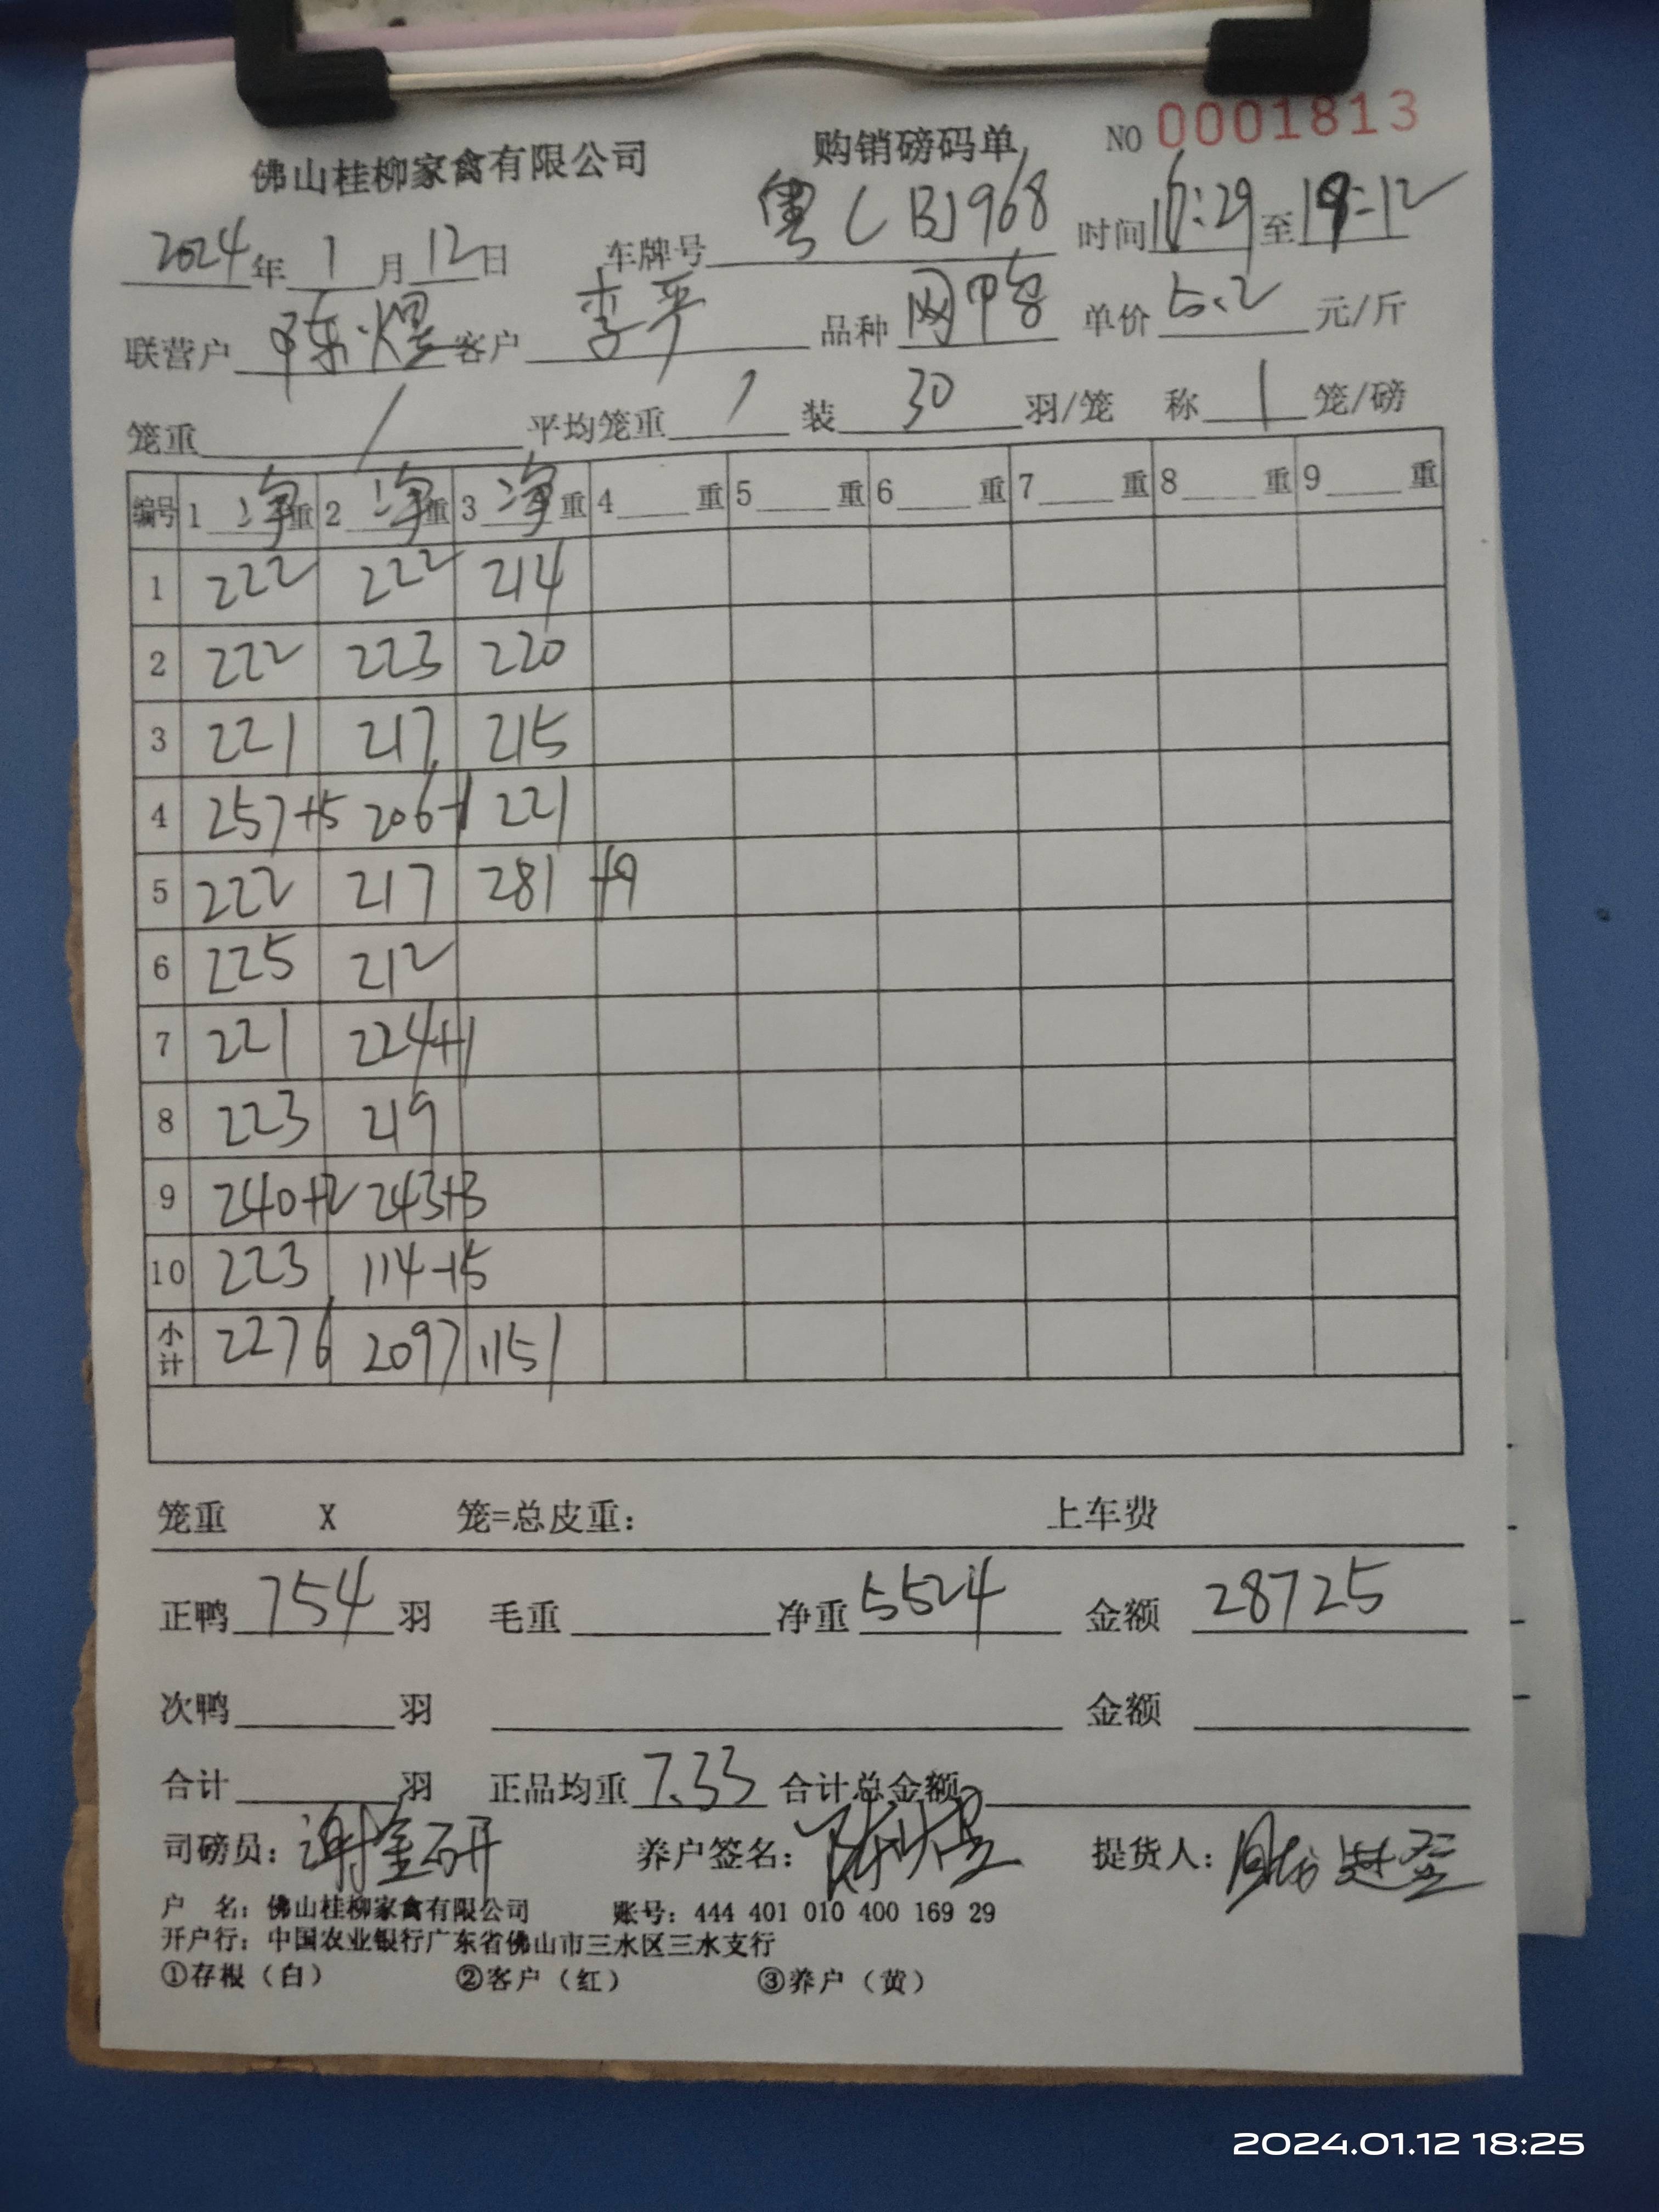 佛山桂柳家禽有限公司 购销磅码单 NO 0001813
2024年 1月12日 车牌号 粤CBJ968 时间 16:29 至 18:12
联营户 陈煜 客户 李平 品种 网鸭 单价 5.2 元/斤
笼重 / 平均笼重 / 装 30 羽/笼 称 1 笼/磅
编号 1 净重 2 净重 3 净重 4 重 5 重 6 重 7 重 8 重 9 重
1 222 222 214
2 222 223 220
3 221 217 215
4 257+5 206-1 221
5 222 217 281 +9
6 225 212
7 221 224+1
8 223 219
9 240+2 243+3
10 223 114-15
小计 2276 2097 1151
笼重 X 笼=总皮重: 上车费
正鸭 754 羽 毛重 净重 5524 金额 28725
次鸭 羽 金额
合计 羽 正品均重 7.33 合计总金额
司磅员: 谢金研 养户签名: 陈煜 提货人:
户 名: 佛山桂柳家禽有限公司 账号: 444 401 010 400 169 29
开户行: 中国农业银行广东省佛山市三水区三水支行
①存根（白） ②客户（红） ③养户（黄）
2024.01.12 18:25